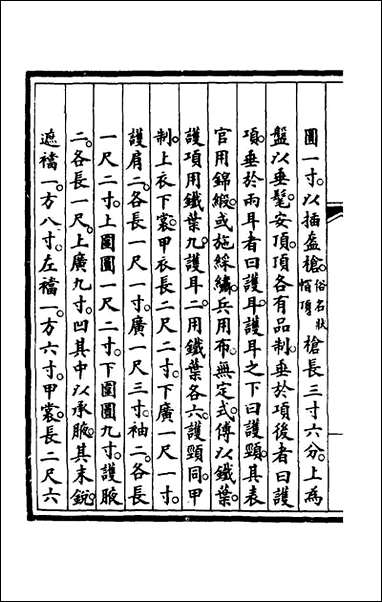 圓一寸以插盔槍俗名狀帽頂槍長三寸六分上為
盤以垂髦安頂頂各有品制垂於項後者曰護
項垂於兩耳者曰護耳護耳之下曰護頸其表
官用錦緞或施綵繡兵用布無定式傅以鐵葉
護項用鐵葉九護耳二用鐵葉各六護頸同甲
制上衣下裳甲衣長二尺二寸下廣一尺一寸
護肩二各長一尺一寸廣一尺三寸袖二各長
一尺二寸上圍圓一尺二寸下圍圓九寸護腋
二各長一尺上廣九寸凹其中以承腋其末銳
遮襠一方八寸左襠一方六寸甲裳長二尺六